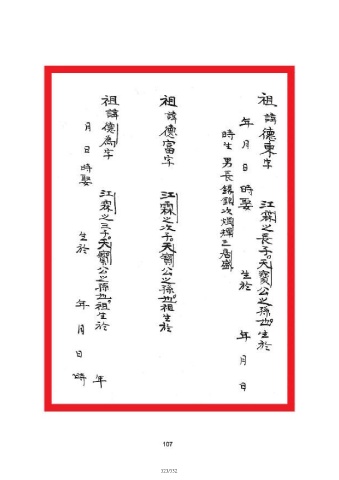 祖諱德東字 江霖之長子。天寶公之孫也。生於
年 月 日 時娶 生於 年 月 日
時生 男長錫錦次燗爛三居盛
祖諱德富字 江霖之次子。天寶公之孫也。祖生於
祖諱德為字 江霖之三子。天寶公之孫也。祖生於 年
月 日 時娶 生於 年 月 日 時
107
123/352